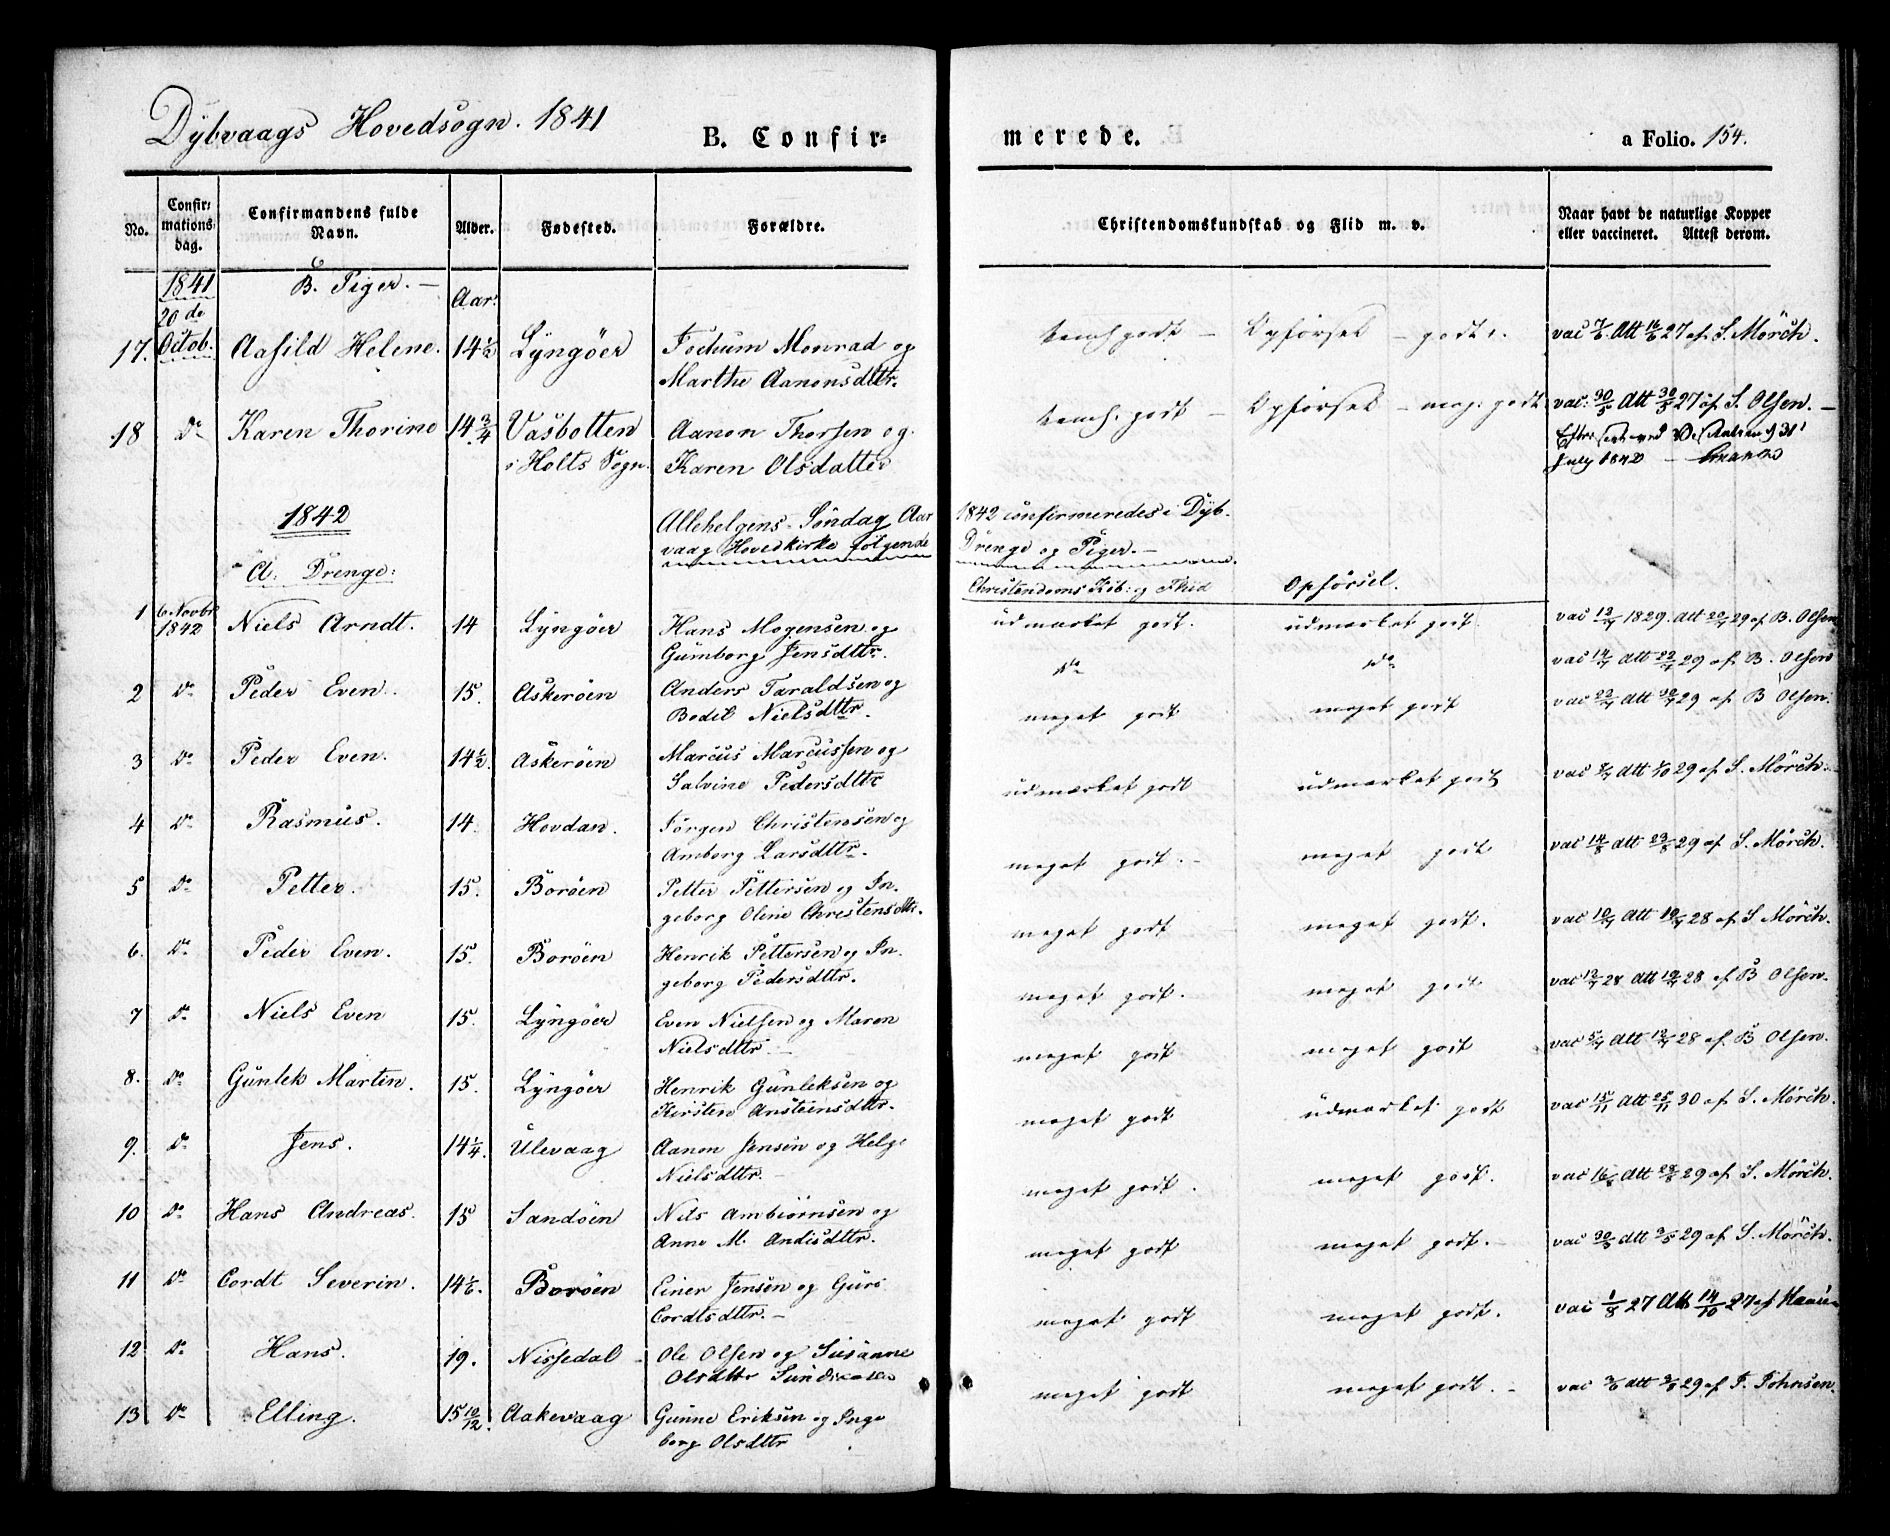 Dybvaags Hovedsogn. 1841
B. Confir=
merede.
a Folio. 154.
No.
Confir=
mations=
dag.
Confirmandens fulde
Navn.
Alder.
Fødested.
Forældre.
Christendomskundskab og Flid m. v.
Naar havt de naturlige Kopper
eller vaccineret. Attest derom.
1841 B. Piger. — Aar:
20de
17. Octob. Aasild Helene. 14½ Lyngöer Fochum Monrad og temh godt — Opförsel — godt. vac 7/6 Att 16/6 27 af S. Mörch.
Marthe Aanonsdttr.
18 do Karen Thorine 14¾ Vasbotten Aanon Thorsen og temh. godt — Opförsel — meg: godt vac: 30/5 Att 30/5 27 af S. Olsen. —
i Holts Sogn. Karen Olsdatter
July 1842
1842 Allehelgens-Söndag Aar 1842 confirmeredes i Dyb-
vaag Hovedkirke fölgende Drenge og Piger. —
A. Drenge:
Christendoms Kdb: og Flid Opförsel.
1 6 Novbr 1842 Niels Arndt. 14 Lyngöer Hans Mogensen og udmærket godt. udmærket godt. vac 12/7 1829. Att 20/7 29 af B. Olsen
Gumborg Jensdttr. do do vac 14/7 Att 22/7 29 af B. Olsen
2 do Peder Even. 15. Askeröen Anders Taraldsen og
Bodil Nielsdttr. meget godt meget godt vac 22/7 Att 30/7 29 af B Olsen.
3 do Peder Even. 14½. Askeröen Marcus Marcussen og
Salvine Pedersdttr udmærket godt udmærket godt vac Att 29 af S. Mörch.
4 do Rasmus. 14. Hovdan. Jörgen Christensen og
Amborg Larsdttr. meget godt. — meget godt vac 14/8 Att 23/8 29 af S. Mörch.
5 do Petter. 15. Boröen Petter Pettersen og In-
geborg Oline Christensdttr. meget godt meget godt. vac 10/7 Att 19/7 28 af S Mörch.
6. do Peder Even. 15. Boröen Henrik Pettersen og In-
geborg Pedersdttr. meget godt. meget godt vac 12/7 28 Att 19/7 28 af B Olsen.
7 do Niels Even 15. Lyngöer Even Nielsen og Maren
Nielsdttr. — meget godt meget godt vac 5/7 Att 12/7 28 af B Olsen.
8. do Gunlek Martin. 15. Lyngöer Henrik Gunleksen og
Kirsten Ansteensdttr. meget godt udmærket godt vac 15/11 Att 25/11 30 af S. Mörch.
9. do Jens. 14¼. Ulevaag Aanon Jensen og Helge
Nielsdttr. — meget godt. meget godt. vac 16/8 Att 28/8 29 af S. Mörch.
10 do Hans Andreas. 15 Sandöen Nils Ambiörnsen og
Anne M. Andisdttr. meget godt meget godt. — vac Att 29 af S. Mörch.
11 do Cordt Severin. 14½. Boröen Einer Jensen og Guro
Cordtsdttr. — meget godt meget godt. vac 1/8 27 Att 14/10 27 af
12 do Hans. 19. Nissedal Ole Olsen og Susanne
Olsdttr meget godt meget godt. — vac Att 29 af F. Föhnsen.
13 do Elling. 15 10/12. Aakevaag Gunne Eriksen og Inge
borg Olsdttr